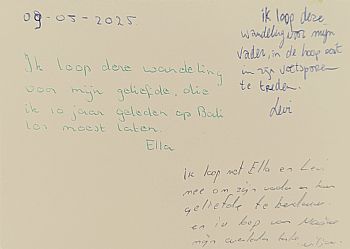 09-05-2025
Ik loop deze wandeling
voor mijn geliefde, die
ik 10 jaar geleden op Bali
los moest laten.
Ella
ik loop deze
wandeling voor mijn
vader, in de hoop ooit
in zijn voetsporen
te treden.
Levi
ik loop met Ella en Levi
mee om zijn vader en haar
geliefde te
en ik loop van
mijn overleden